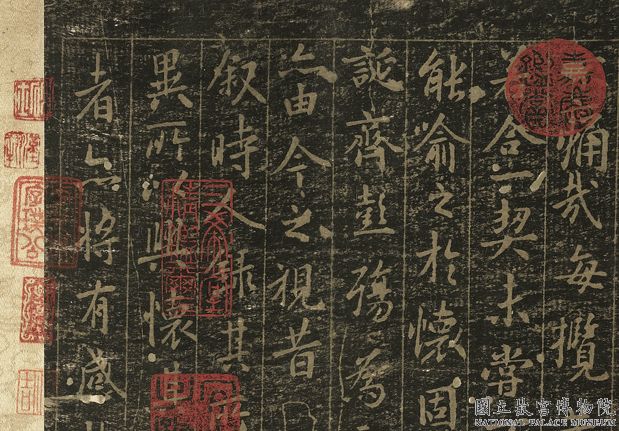 痛哉每攬
若合一契未嘗
能喻之於懷固
誕齊彭殤為
亦由今之視昔
叙時人錄其所
異所以興懷其
者亦將有感
國立故宮博物院
NATIONAL PALACE MUSEUM